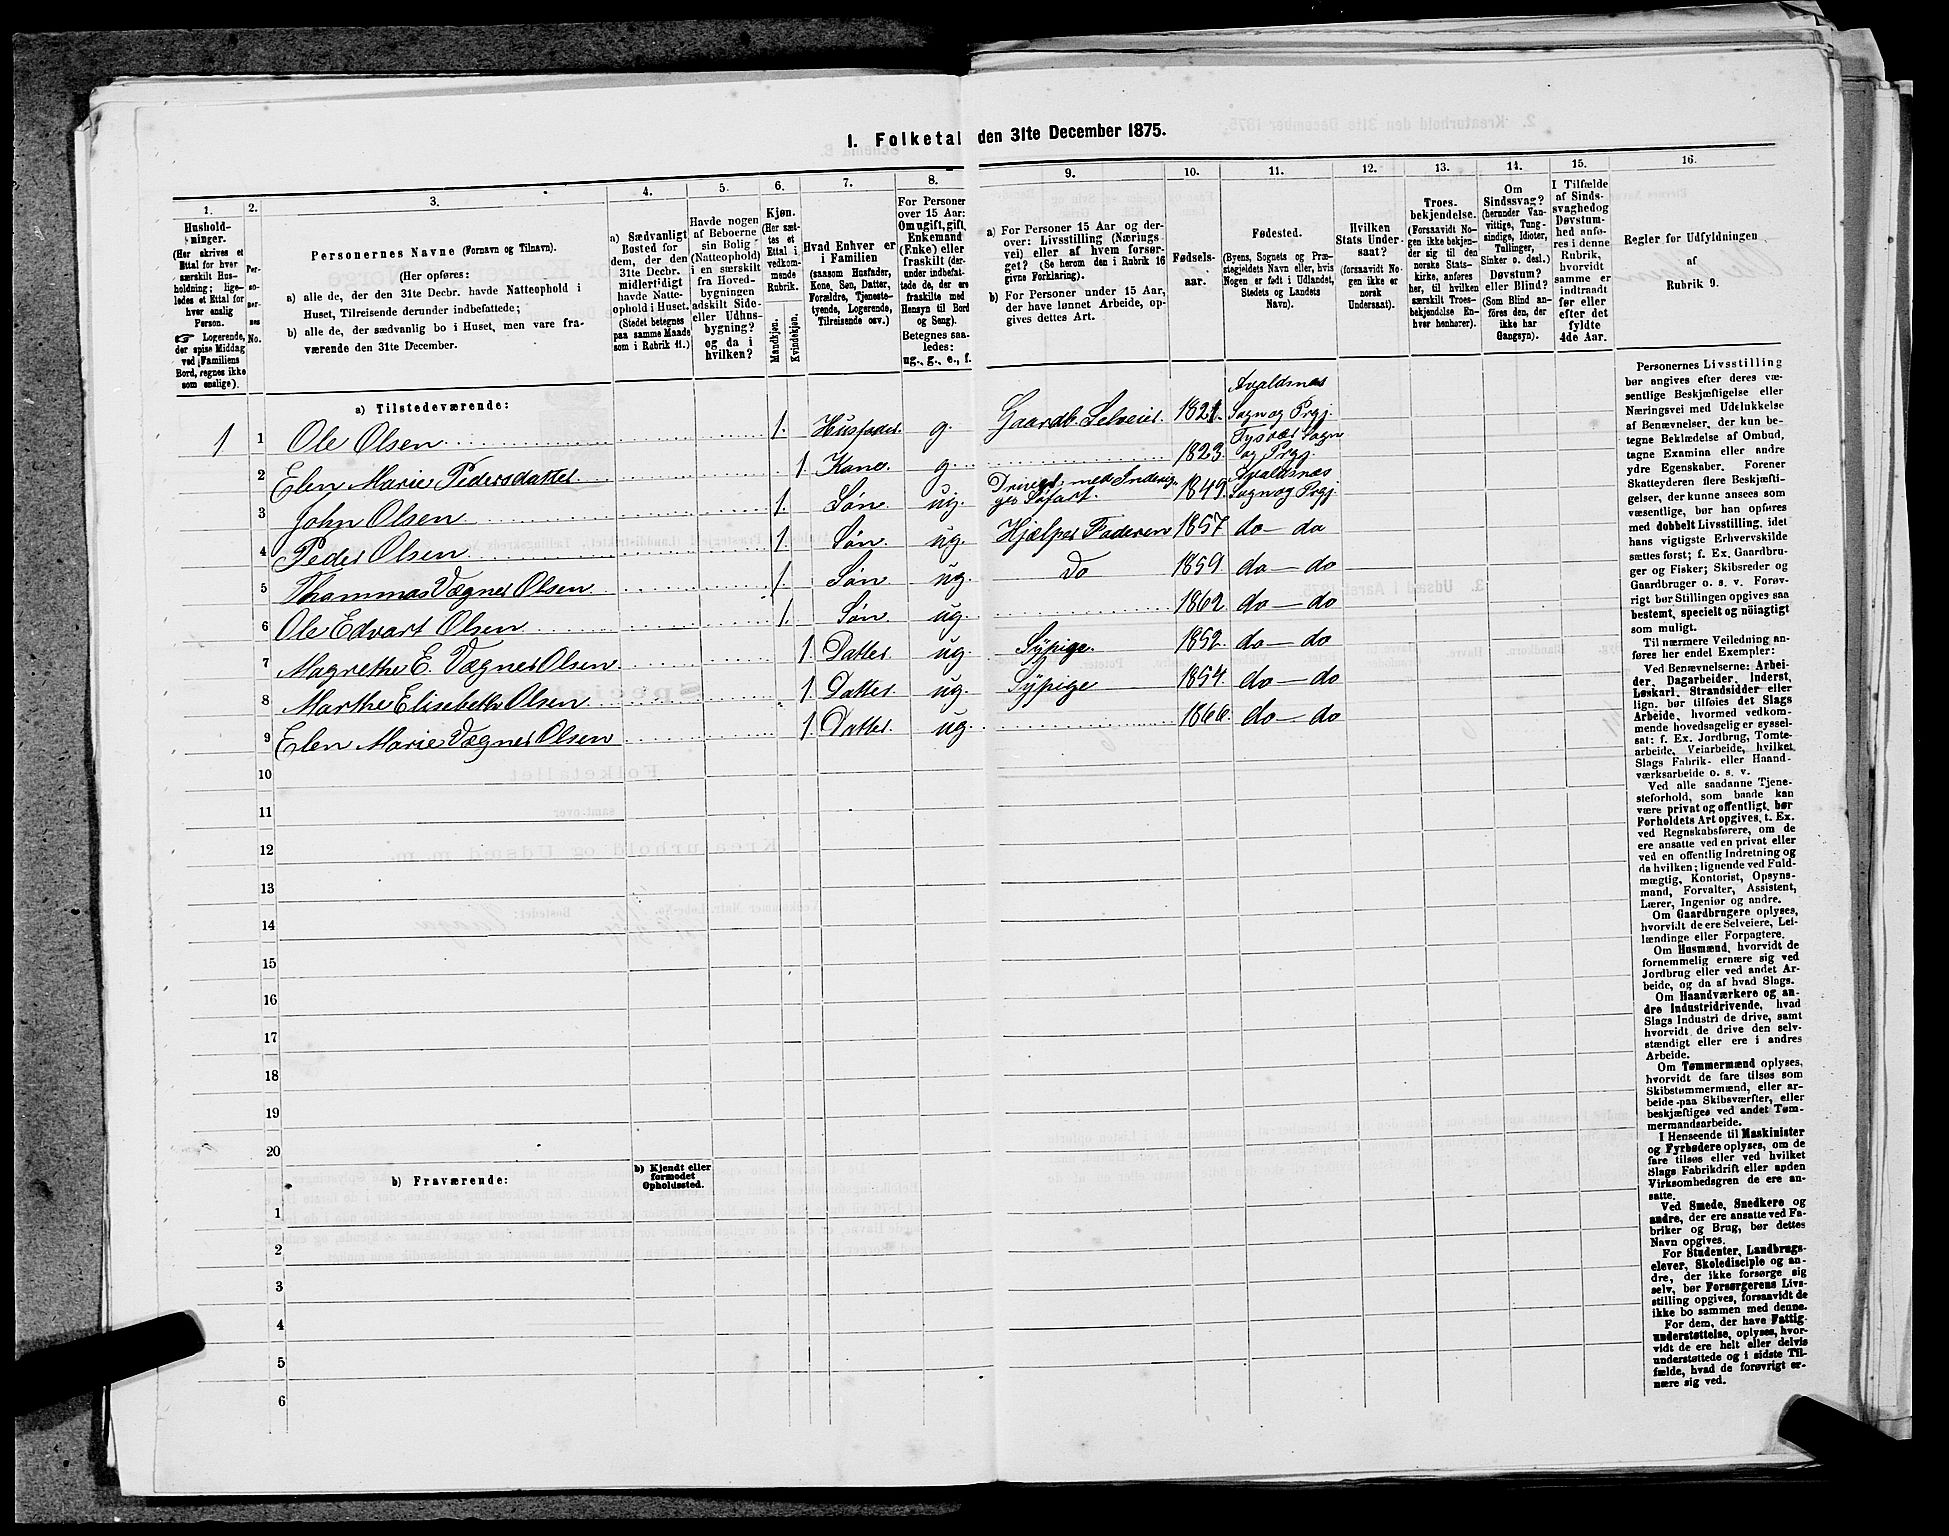 I. Folketal den 31te December 1875.
1.
Hushold-
ninger.
(Her skrives et
Ettal for hver
særskilt Hus-
holdning; lige-
ledes et Ettal for
hver enslig
Person.
☞ Logerende,
der spise Middag
ved Familiens
Bord, regnes ikke
som enslige).
2.
Per-
so-
ner-
nes
No.
3.
Personernes Navne (Fornavn og Tilnavn).
(Her opføres:
a) alle de, der den 31te Decbr. havde Natteophold i
Huset, Tilreisende derunder indbefattede;
b) alle de, der sædvanlig bo i Huset, men vare fra-
værende den 31te December.
4.
a) Sædvanligt
Bosted for
dem, der den
31te Decbr.
midlertidigt
havde Natte-
ophold i Huset.
(Stedet betegnes
paa samme Maade
som i Rubrik 11.)
5.
Havde nogen
af Beboerne
sin Bolig
(Natteophold)
i en særskilt
fra Hoved-
bygningen
adskilt Side-
eller Udhus-
bygning?
og da i
hvilken?
6.
Kjøn.
(Her sæt-
tes et
Ettal i
vedkom-
mende
Rubrik.
Mandkjøn.
Kvindekjøn.
7.
Hvad Enhver er
i Familien
(saasom Husfader,
Kone, Søn, Datter,
Forældre, Tjeneste-
tyende, Logerende,
Tilreisende osv.)
8.
For Personer
over 15 Aar:
Om ugift, gift,
Enkemand
(Enke) eller
fraskilt (der-
under indbefat-
tede de, der ere
fraskilte med
Hensyn til Bord
og Seng).
Betegnes saa-
ledes:
ug., g., e., f.
9.
a) For Personer 15 Aar og der-
over: Livsstilling (Nærings-
vei) eller af hvem forsør-
get? (Se herom den i Rubrik 16
givne Forklaring).
b) For Personer under 15 Aar,
der have lønnet Arbeide, op-
gives dettes Art.
10.
Fødsels-
aar.
11.
Fødested.
(Byens, Sognets og Præ-
stegjeldets Navn eller, hvis
Nogen er født i Udlandet,
Stedets og Landets
Navn).
12.
Hvilken
Stats Under-
saat?
(forsaavidt No-
gen ikke er
norsk
Undersaat).
13.
Troes-
bekjendelse.
(Forsaavidt No-
gen ikke bekjen-
der sig til den
norske Stats-
kirke, anføres
her, til hvilken
særskilt Troes-
bekjendelse En-
hver henhører).
14.
Om
Sindssvag?
(herunder Van-
vittige, Tung-
sindige, Idioter,
Tullinger,
Sinker o. desl.)
Døvstum?
eller Blind?
(Som Blind an-
føres den, der
ikke har
Gangsyn).
15.
I Tilfælde
af Sinds-
svaghed og
Døvstum-
hed anfø-
res i denne
Rubrik,
hvorvidt
samme er
indtraadt
før eller
efter det
fyldte
4de Aar.
16.
Regler for Udfyldningen
af
Rubrik 9.
a) Tilstedeværende:
1 1 Ole Olsen 1. Husfader g. Gaardb. Selveier. 1821. Avaldsnes Sogn og Prgj.
2 Elen Marie Pedersdatter 1 Kone g. 1823 Tysvær Sogn og Prgj.
3 John Olsen 1. Søn ug. Driver med Indenri- ges Søfart. 1849. Avaldsnæs Sogn og Prgj
4 Peder Olsen 1. Søn. ug. Hjælper Faderen 1857 do — do
5 Thommas Vægner Olsen 1. Søn ug. Do 1859. do — do
6 Ole Edvart Olsen 1. Søn ug. 1862. do — do
7 Magrethe E. Vægner Olsen. 1. Datter ug. Sÿpige. 1852. do — do
8 Marthe Elisebethe Olsen 1. Datter. ug. Sÿpige 1854. do — do
9 Elen Marie Vægner Olsen 1. Datter ug. 1866. do — do
10
11
12
13
14
15
16
17
18
19
20
b) Fraværende:
b) Kjendt eller
formodet
Opholdssted.
1
2
3
4
5
6
Personernes Livsstilling
bør angives efter deres væ-
sentlige Beskjæftigelse eller
Næringsvei med Udelukkelse
af Benævnelser, der kun be-
tegne Beklædelse af Ombud,
tagne Examina eller andre
ydre Egenskaber. Forener
Skatteyderen flere Beskjæfti-
gelser, der kunne ansees som
væsentlige, bør han opføres
med dobbelt Livsstilling, idet
hans vigtigste Erhvervskilde
sættes først; f. Ex. Gaardbru-
ger og Fisker; Skibsreder og
Gaardbruger o. s. v. Forøv-
rigt bør Stillingen opgives saa
bestemt, specielt og nöiagtigt
som muligt.
Til nærmere Veiledning an-
føres her endel Exempler:
Ved Benævnelserne: Arbei-
der, Dagarbeider, Inderst,
Løskarl, Strandsidder eller
lign. bør tilføies det Slags
Arbeide, hvormed vedkom-
mende hovedsagelig er syssel-
sat: f. Ex. Jordbrug, Tomte-
arbeide, Veiarbeide, hvilket
Slags Fabrik- eller Haand-
værksarbeide o. s. v.
Ved alle saadanne Tjene-
steforhold, som baade kan
være privat og offentligt, bør
Forholdets Art opgives, t. Ex.
ved Regnskabsførere, om de
ere ansatte ved en privat eller
ved en offentlig Indretning og
da hvilken; lignende ved Fuld-
mægtig, Kontorist, Opsyns-
mand, Forvalter, Assistent,
Lærer, Ingeniør og andre.
Om Gaardbrugere oplyses,
hvorvidt de ere Selveiere, Lei-
lændinge eller Forpagtere.
Om Husmænd, hvorvidt de
fornemmelig ernære sig ved
Jordbrug eller ved andet Ar-
beide, og da af hvad Slags.
Om Haandværkere og an-
dre Industridrivende, hvad
Slags Industri de drive, samt
hvorvidt de drive den selv-
stændigt eller ere i andres
Arbeide.
Om Tømmermænd oplyses,
hvorvidt de fare tilsøs som
Skibstømmermænd, eller ar-
beide paa Skibsværfter, eller
beskjæftiges ved andet Tøm-
mermandsarbeide.
I Henseende til Maskinister
og Fyrbødere oplyses, om de
fare tilsøs eller ved hvilket
Slags Fabrikdrift eller anden
Virksomhedsgren de ere an-
satte.
Ved Smede, Snedkere og
andre, der ere ansatte ved Fa-
briker og Brug, bør dettes
Navn opgives.
For Studenter, Landbrugs-
elever, Skoledisciple og an-
dre, der ikke forsørge sig
selv, bør Forsørgerens Livs-
stilling opgives, forsaavidt de
ikke bo sammen med denne.
For dem, der have Fattig-
understøttelse, oplyses, hvor-
vidt de ere helt eller delvis
understøttede og i sidste Til-
fælde, hvad de forøvrigt er-
nære sig ved.